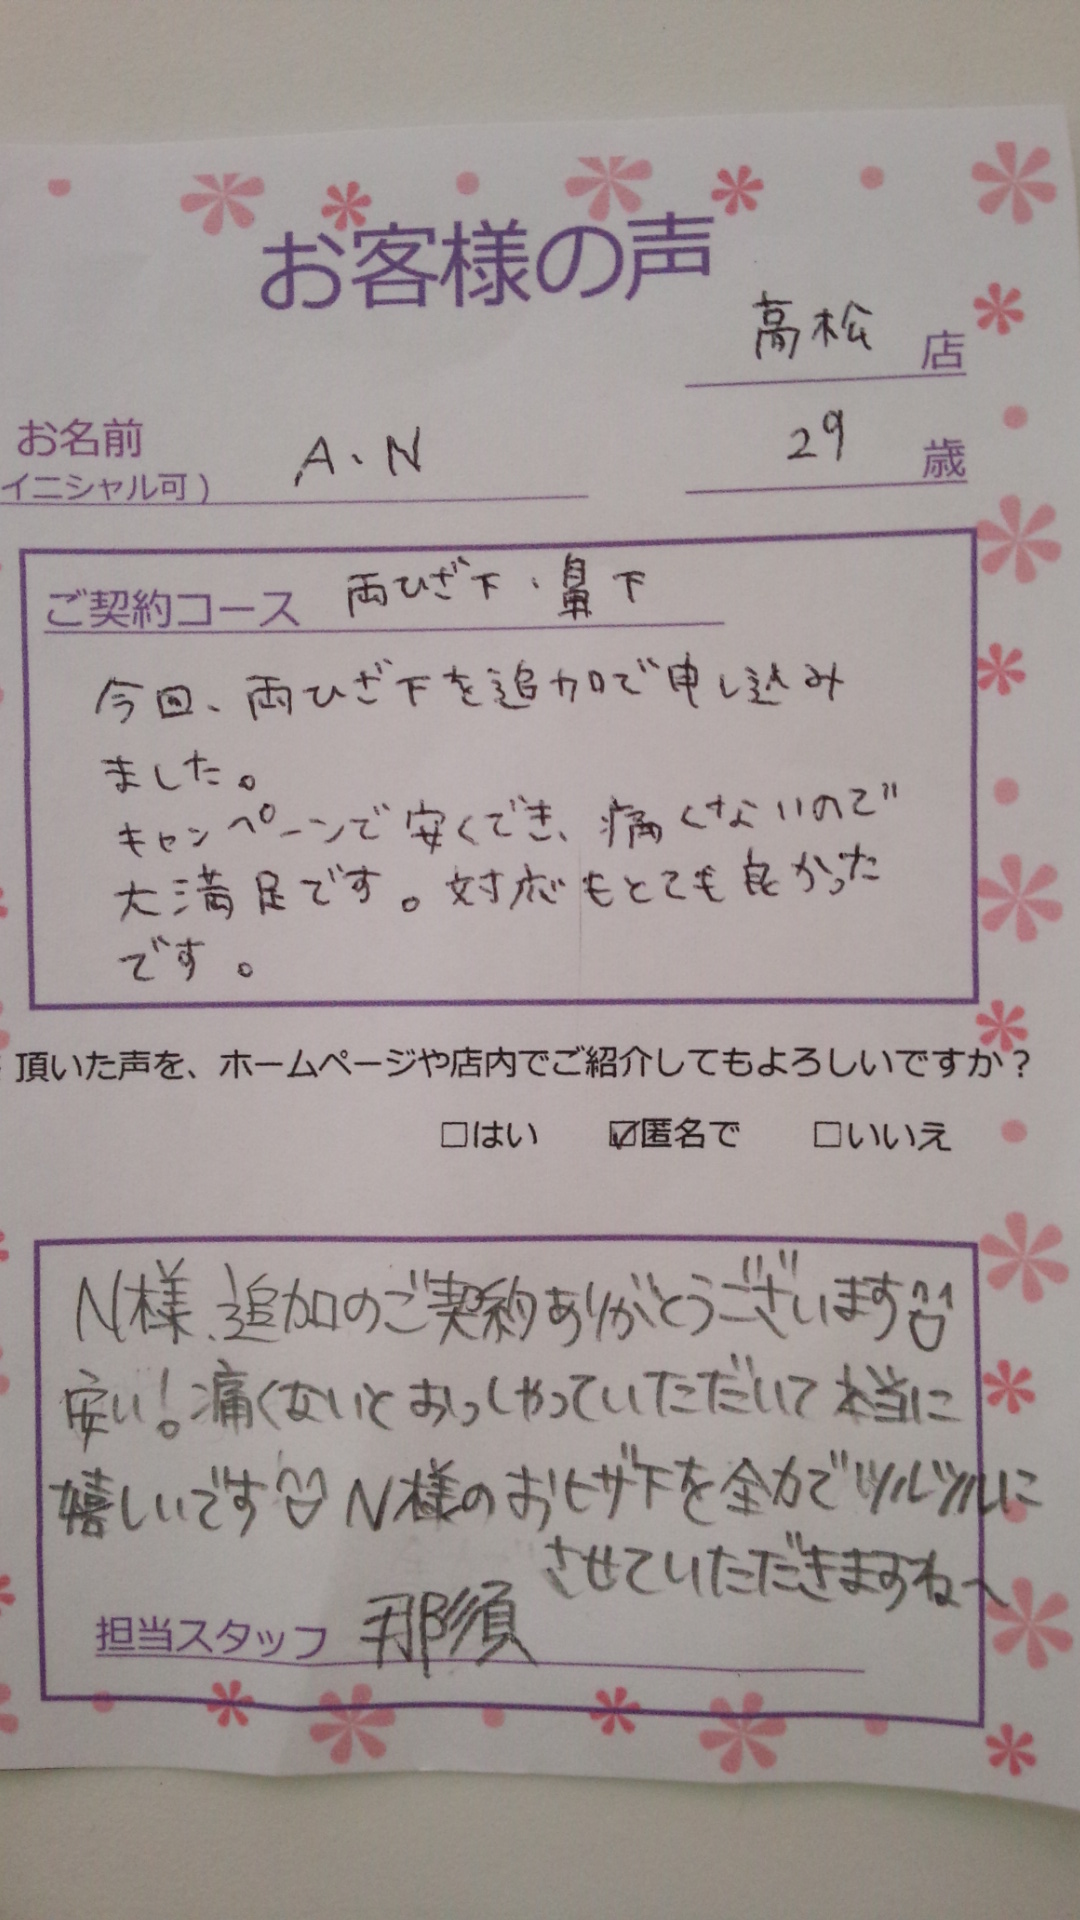 お客様の声
高松 店
お名前
(イニシャル可) A、N
29 歳
ご契約コース 両ひざ下、鼻下
今回、両ひざ下を追加で申し込み
ました。
キャンペーンで安くでき、痛くないので
大満足です。対応もとても良かった
です。
頂いた声を、ホームページや店内でご紹介してもよろしいですか？
□はい ☑匿名で □いいえ
N様、追加のご契約ありがとうございます
安い!痛くないとおっしゃっていただいて本当に
嬉しいです N様のおヒザ下を全力でツルツルに
させていただきますね〜
担当スタッフ 那須